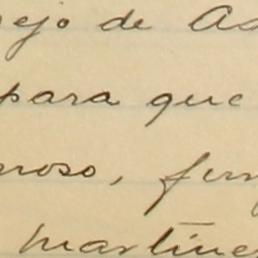 nejo de As
para que
noso, fun
martine